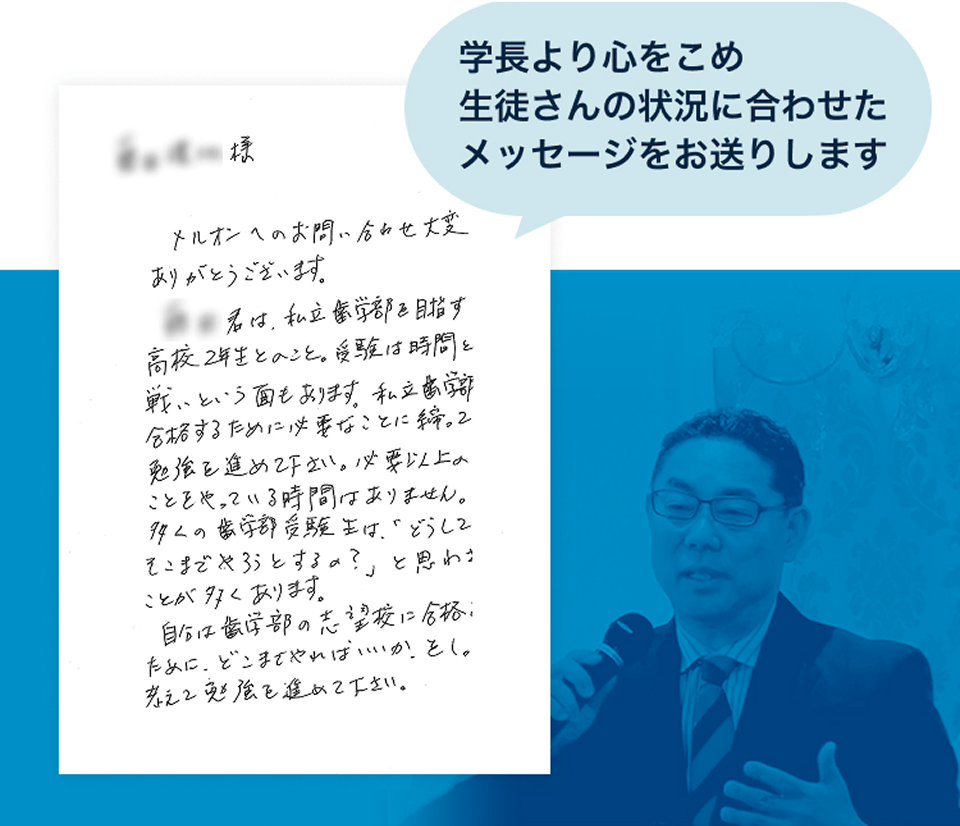 学長より心をこめ
生徒さんの状況に合わせた
メッセージをお送りします
様
メルオンへのお問い合わせ大変
ありがとうございます。
君は、私立歯学部を目指す
高校2年生とのこと。受験は時間と
戦いという面もあります。私立歯学部
合格するために必要なことに締って
勉強を進めて下さい。必要以上の
ことをやっている時間はありません。
多くの歯学部受験生は、「どうして
そこまでやろうとするの?」と思わ
ことが多くあります。
自分は歯学部の志望校に合格
ために、どこまでやればいいか、をし。
考えて勉強を進めて下さい。